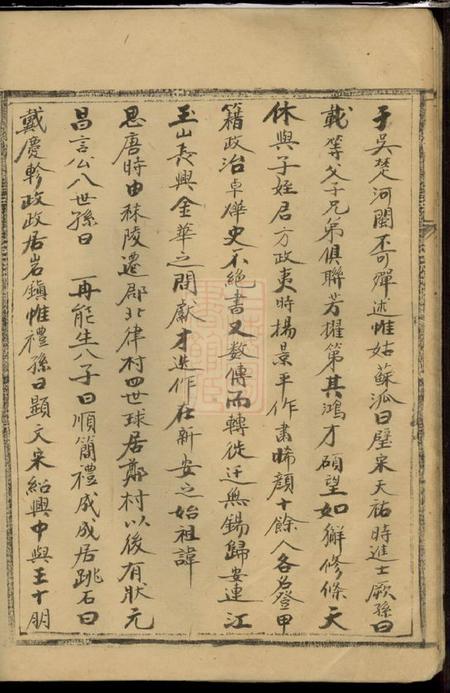 于吳楚河閩不可殫述惟姑蘇派曰璧宋天祐時進士厥孫曰
載等父子兄弟俱聯芳擢第其鴻才碩望如獬修條天
休與子姪君方政吏時揚景平作肅晞顏十餘人各登甲
籍政治卓犖史不絕書又數傳而轉徙迁無錫歸安連江
玉山長興金華之間獻才迭作在新安之始祖諱
恩唐時由秣陵遷郡北律村四世球居鄭村以後有狀元
昌言公八世孫曰 再能生八子曰順簡禮成成居跳石曰
戴慶軫政政居岩鎮惟禮孫曰顯文宋紹興中與王十朋